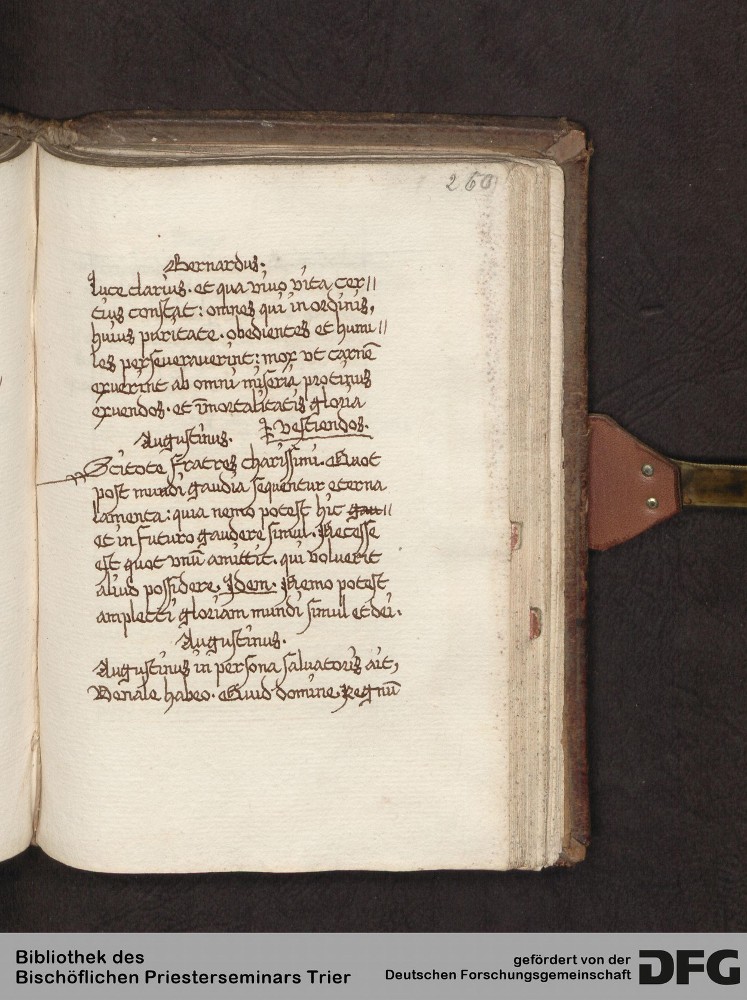 260
Bernardus.
Luce clarius. et qua vivo vita cer//
tius constat: omnes qui in ordinis,
huius puritate. obedientes et humi//
les perseveraverint: mox vt carnē
exuerint ab omni miseria protinus
exuendos. et īmortalitatis gloria
vestiendos.
Augustinus.
Scitote fratres charissimi. Quot
post mundi gaudia sequentur eterna
lamenta: quia nemo potest hic gau//
et in futuro gaudere simul. Necesse
est quot vnū amittit. qui voluerit
aliud possidere. Idem. Nemo potest
amplecti gloriam mundi simul et dei.
Augustinus.
Augustinus in persona salvatoris ait,
Venale habeo. Quid domine. Regnū
Bibliothek des
Bischöflichen Priesterseminars Trier
gefördert von der
Deutschen Forschungsgemeinschaft
DFG